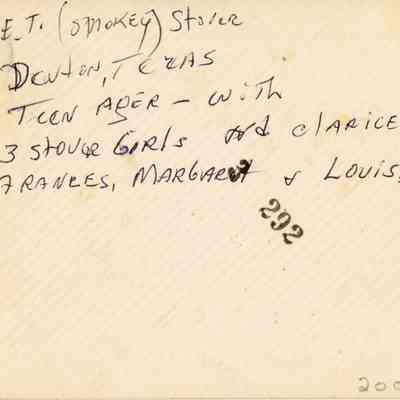 E.T. (SMOKEY) Stover
DENTON, TEXAS
TEEN AGER - WITH
3 STOVER GIRLS and CLARICE
FRANCES, MARGARET & LOUIS
292
200